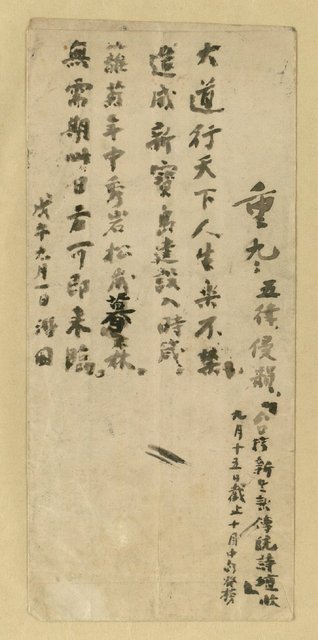 重九 五律侵韻
台灣新生報傳統詩壇收
九月十五日截止十月中旬發榜
大道行天下人生樂不禁
造成新寶島建設入時箴
蘿菊年中秀岩松歲暮森
無需期卅日方可即來臨
戊午九月一日鴻圖